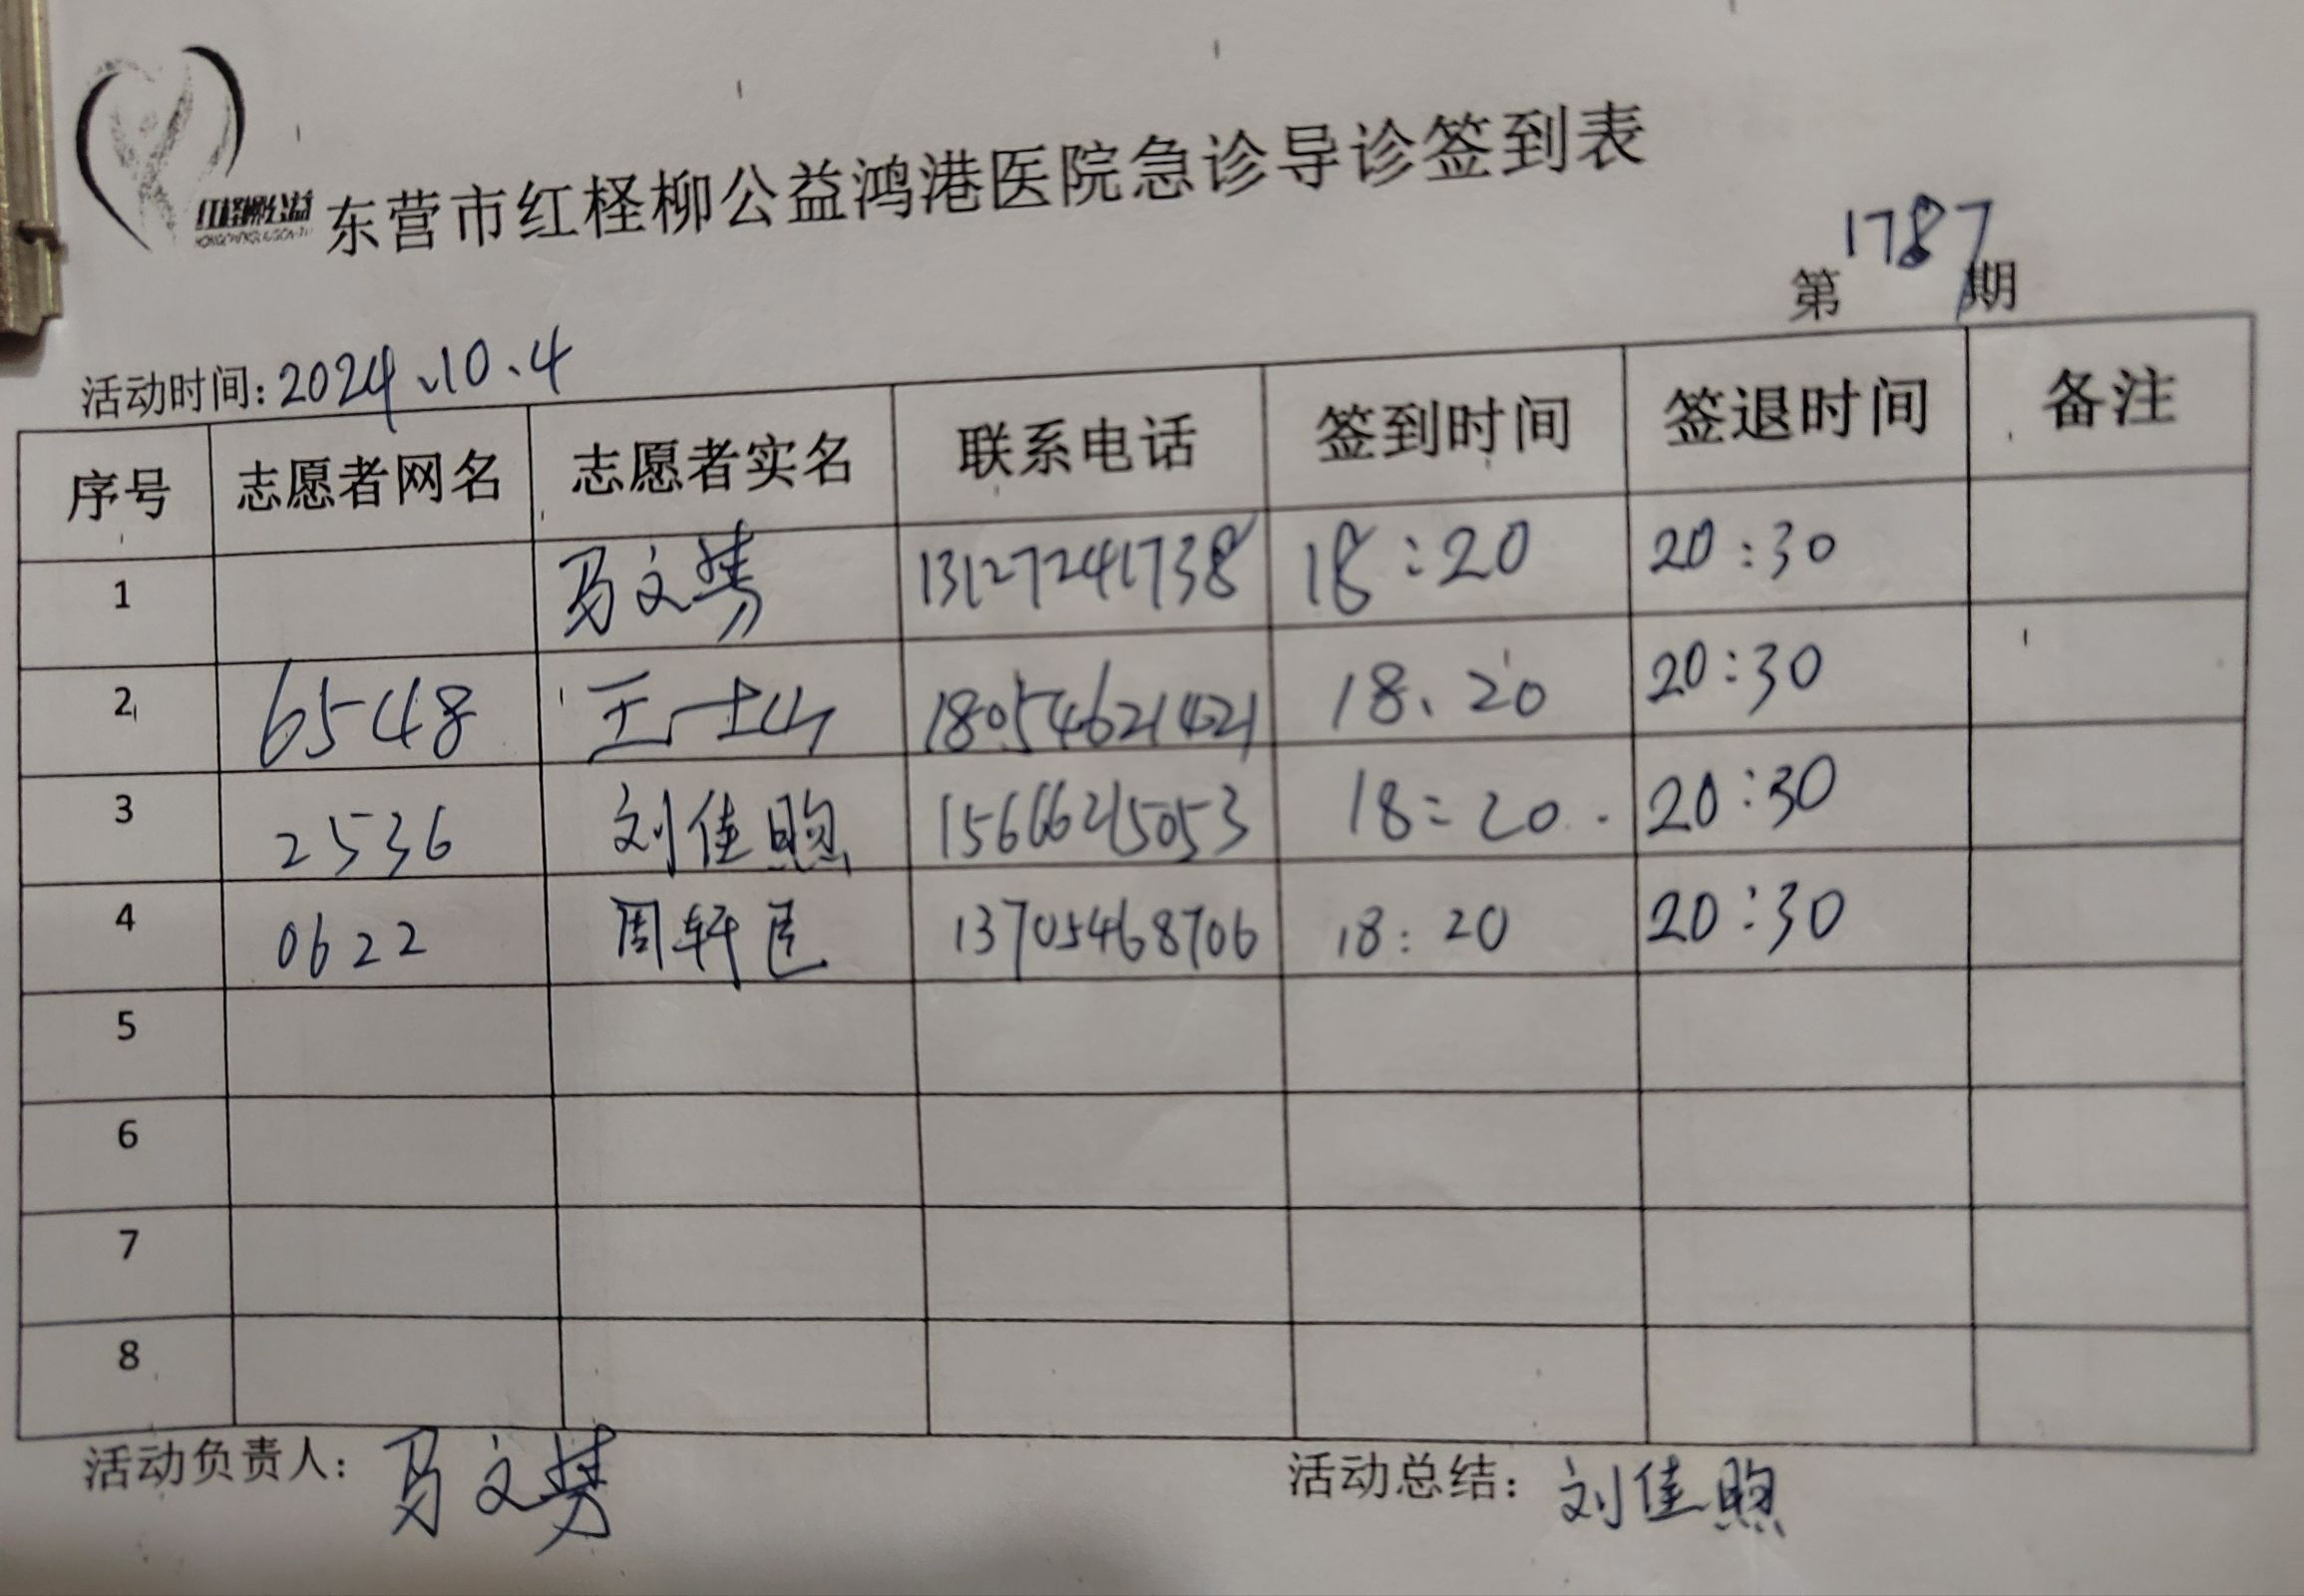 红柽柳公益
东营市红柽柳公益鸿港医院急诊导诊签到表
第1787期
活动时间:2024、10、4
序号 志愿者网名 志愿者实名 联系电话 签到时间 签退时间 备注
1 马文 13127241738 18:20 20:30
2 6548 王 18054621421 18、20 20:30
3 2536 刘佳煦 15666215053 18:20 20:30
4 0622 周轩 13705468706 18:20 20:30
5
6
7
8
活动负责人: 马文
活动总结: 刘佳煦